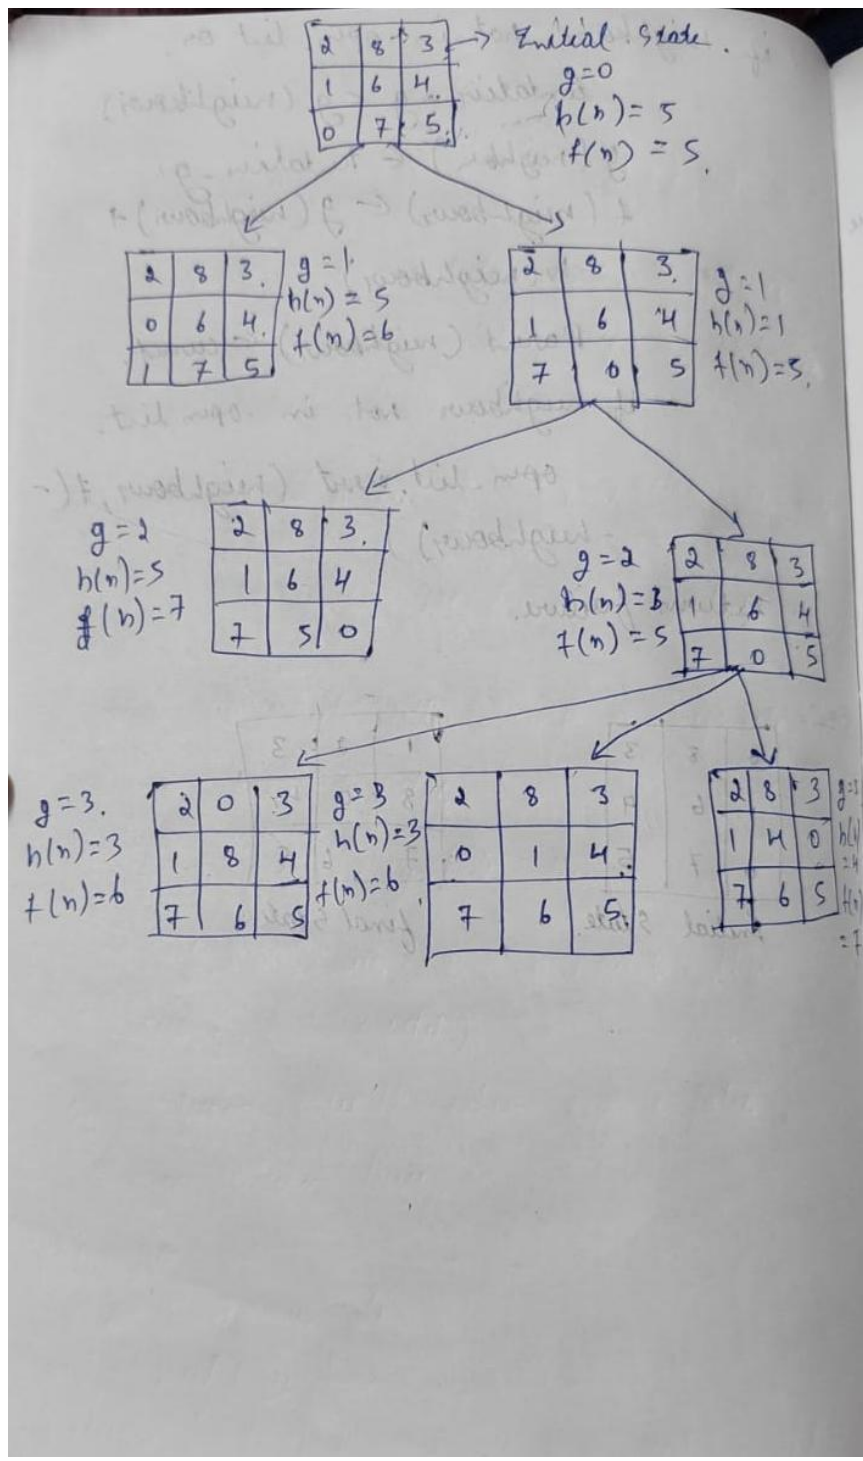 2 8 3 → Initial State.
1 6 4
0 7 5
g=0
h(n) = 5
f(n) = 5.
2 8 3
0 6 4
1 7 5
g=1
h(n) = 5
f(n) = 6
2 8 3
1 6 4
7 0 5
g=1
h(n)=1
f(n)=5.
g=2
h(n)=5
f(n)=7
2 8 3
1 6 4
7 5 0
g=2
h(n)=3
f(n)=5
2 8 3
1 6 4
7 0 5
g=3.
h(n)=3
f(n)=6
2 0 3
1 8 4
7 6 5
g=3
h(n)=3
f(n)=6
2 8 3
0 1 4
7 6 5
2 8 3
1 4 0
7 6 5
=4
=7